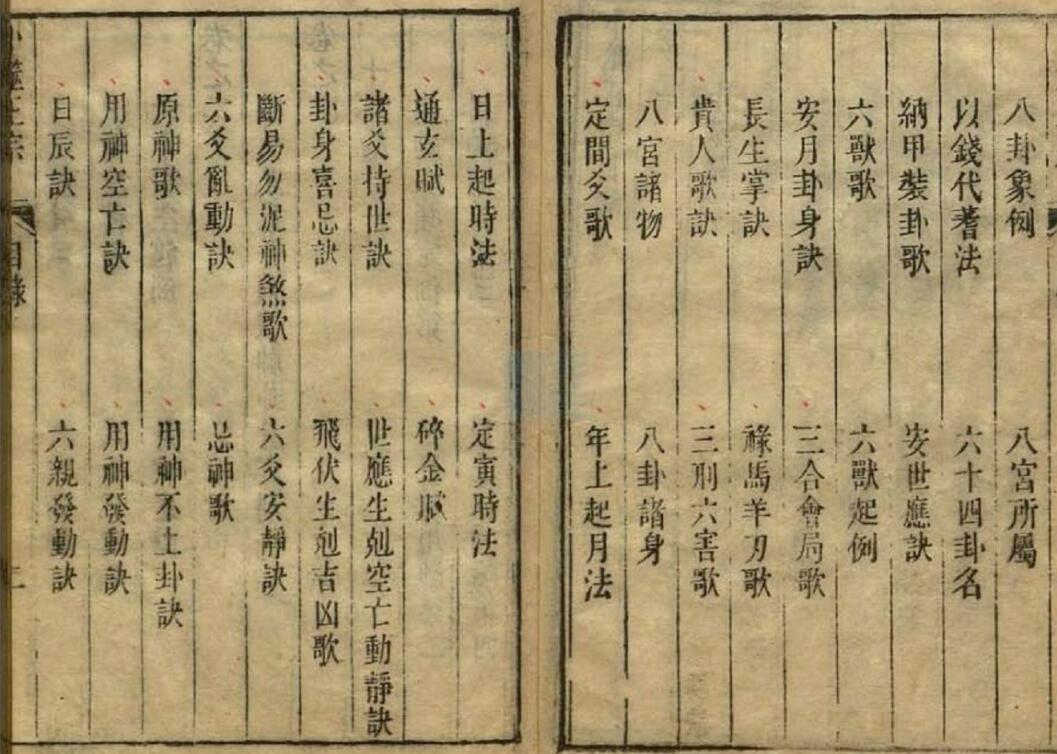 八卦象例　八宮所屬
以錢代蓍法　六十四卦名
納甲裝卦歌　安世應訣
六獸歌　六獸起例
安月卦身訣　三合會局歌
長生掌訣　祿馬羊刃歌
貴人歌訣　三刑六害歌
八宮諸物　八卦諸身
定間爻歌　年上起月法
日上起時法　定寅時法
通玄賦　碎金賦
諸爻持世訣　世應生剋空亡動靜訣
卦身喜忌訣　飛伏生剋吉凶歌
斷易勿泥神煞歌　六爻安靜訣
六爻亂動訣　忌神歌
原神歌　用神不上卦訣
用神空亡訣　用神發動訣
日辰訣　六親發動訣
筮正宗　目錄　二